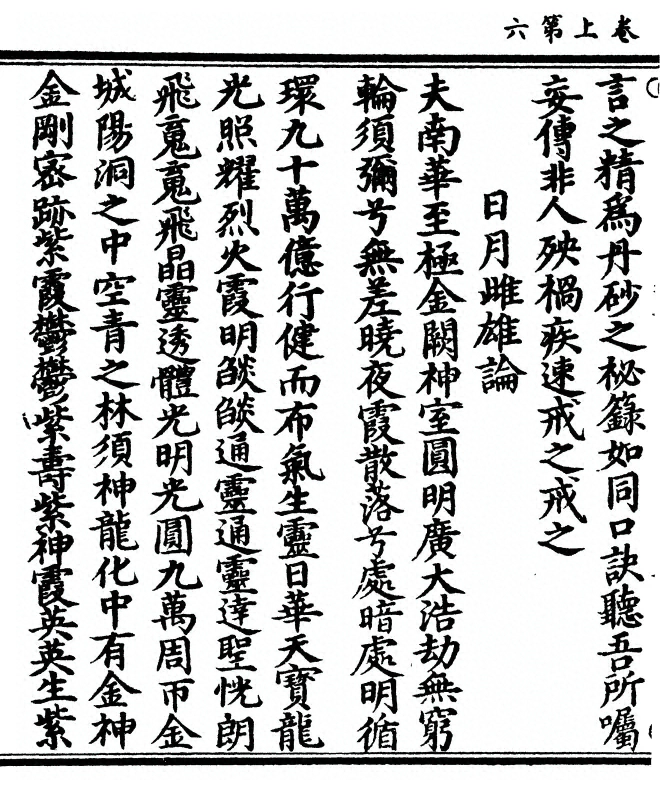 卷上第六
言之精爲丹砂之祕籙如同口訣聽吾所囑
妄傳非人殃禍疾速戒之戒之
日月雌雄論
夫南華至極金闕神室圓明廣大浩劫無窮
輪須彌兮無差曉夜霞散落兮處暗處明循
環九十萬億行健而布氣生靈日華天寶龍
光照耀烈火霞明燄燄通靈通靈達聖恍朗
飛䰟䰟飛晶靈透體光明光圓九萬周帀金
城陽洞之中空青之林須神龍化中有金神
金剛宻跡紫霞鬱鬱紫壽紫神霞英英生紫